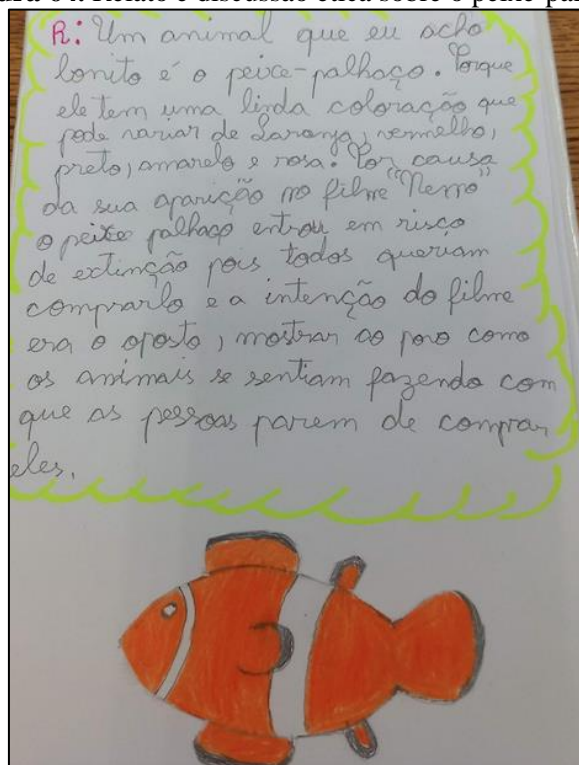 R: Um animal que eu acho
bonito é o peixe-palhaço. Porque
ele tem uma linda coloração que
pode variar de Laranja, vermelho,
preto, amarelo e rosa. Por causa
da sua aparição no filme "Nemo"
o peixe palhaço entrou em risco
de extinção pois todos queriam
comprarlo e a intenção do filme
era o oposto, mostrar ao povo como
os animais se sentiam fazendo com
que as pessoas parem de comprar
eles.